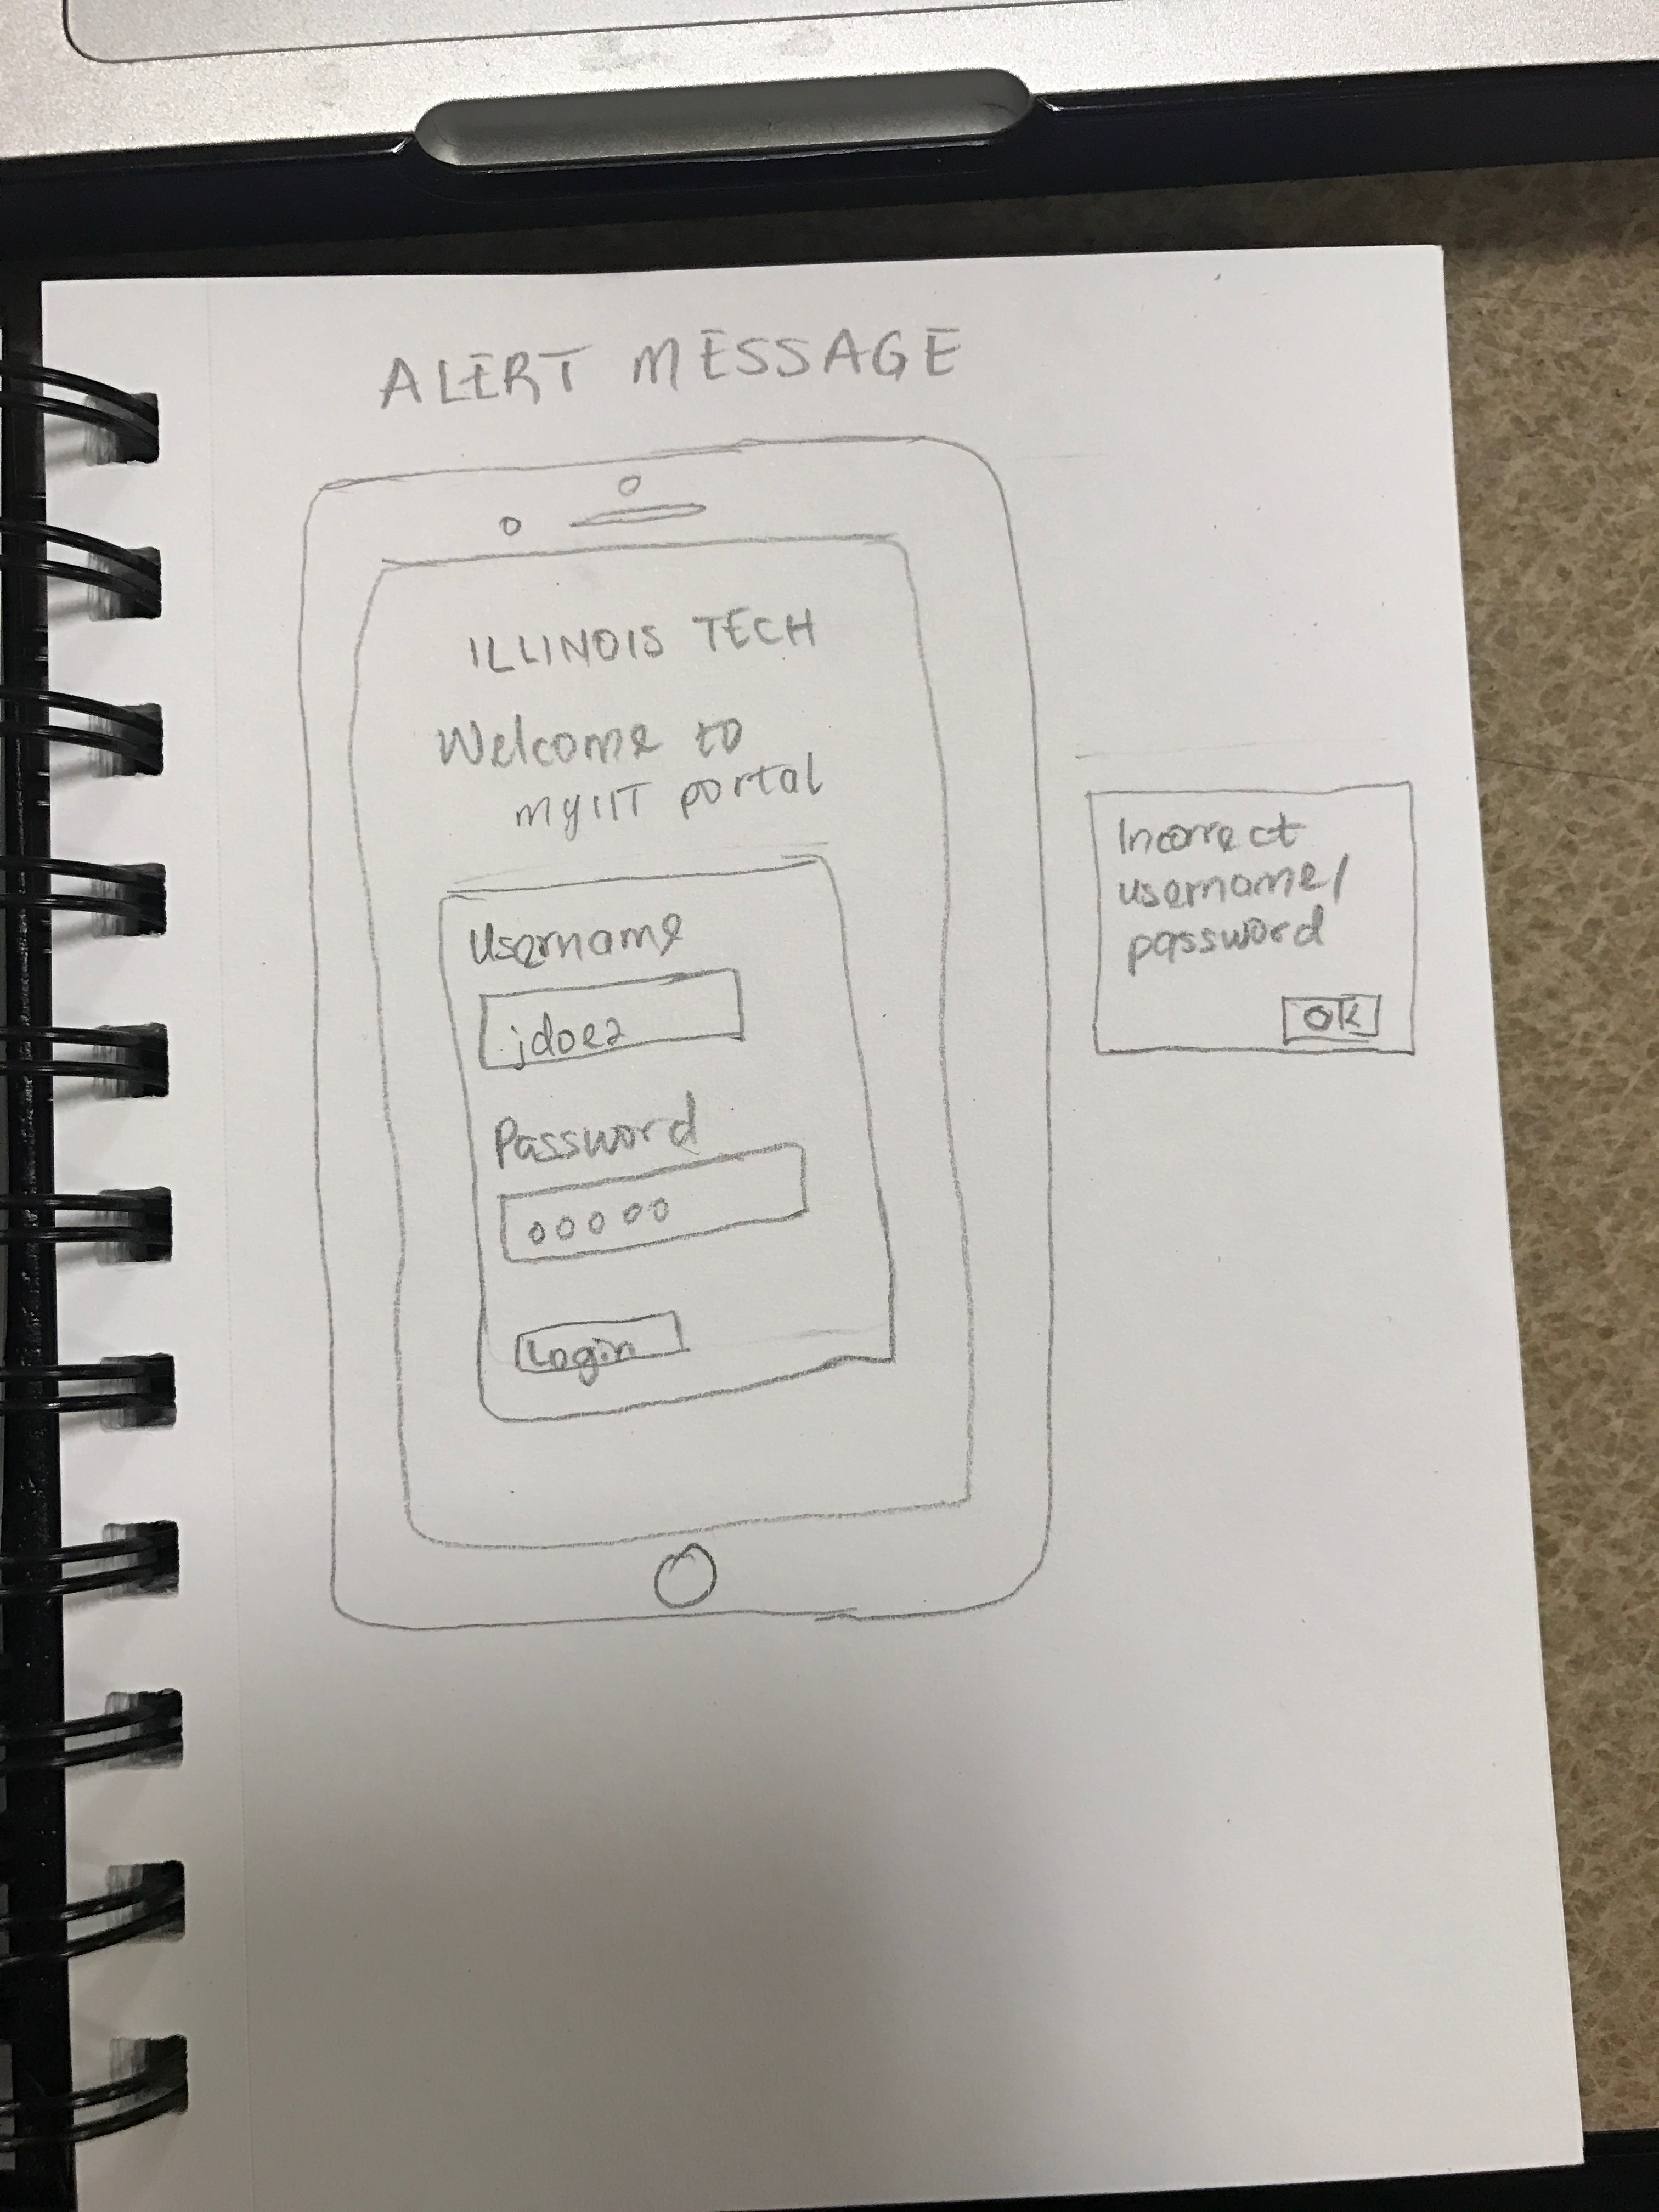 ALERT MESSAGE
ILLINOIS TECH
Welcome to
myIIT portal
Username
jdoe2
Password
Login
Incorrect
username/
password
OK